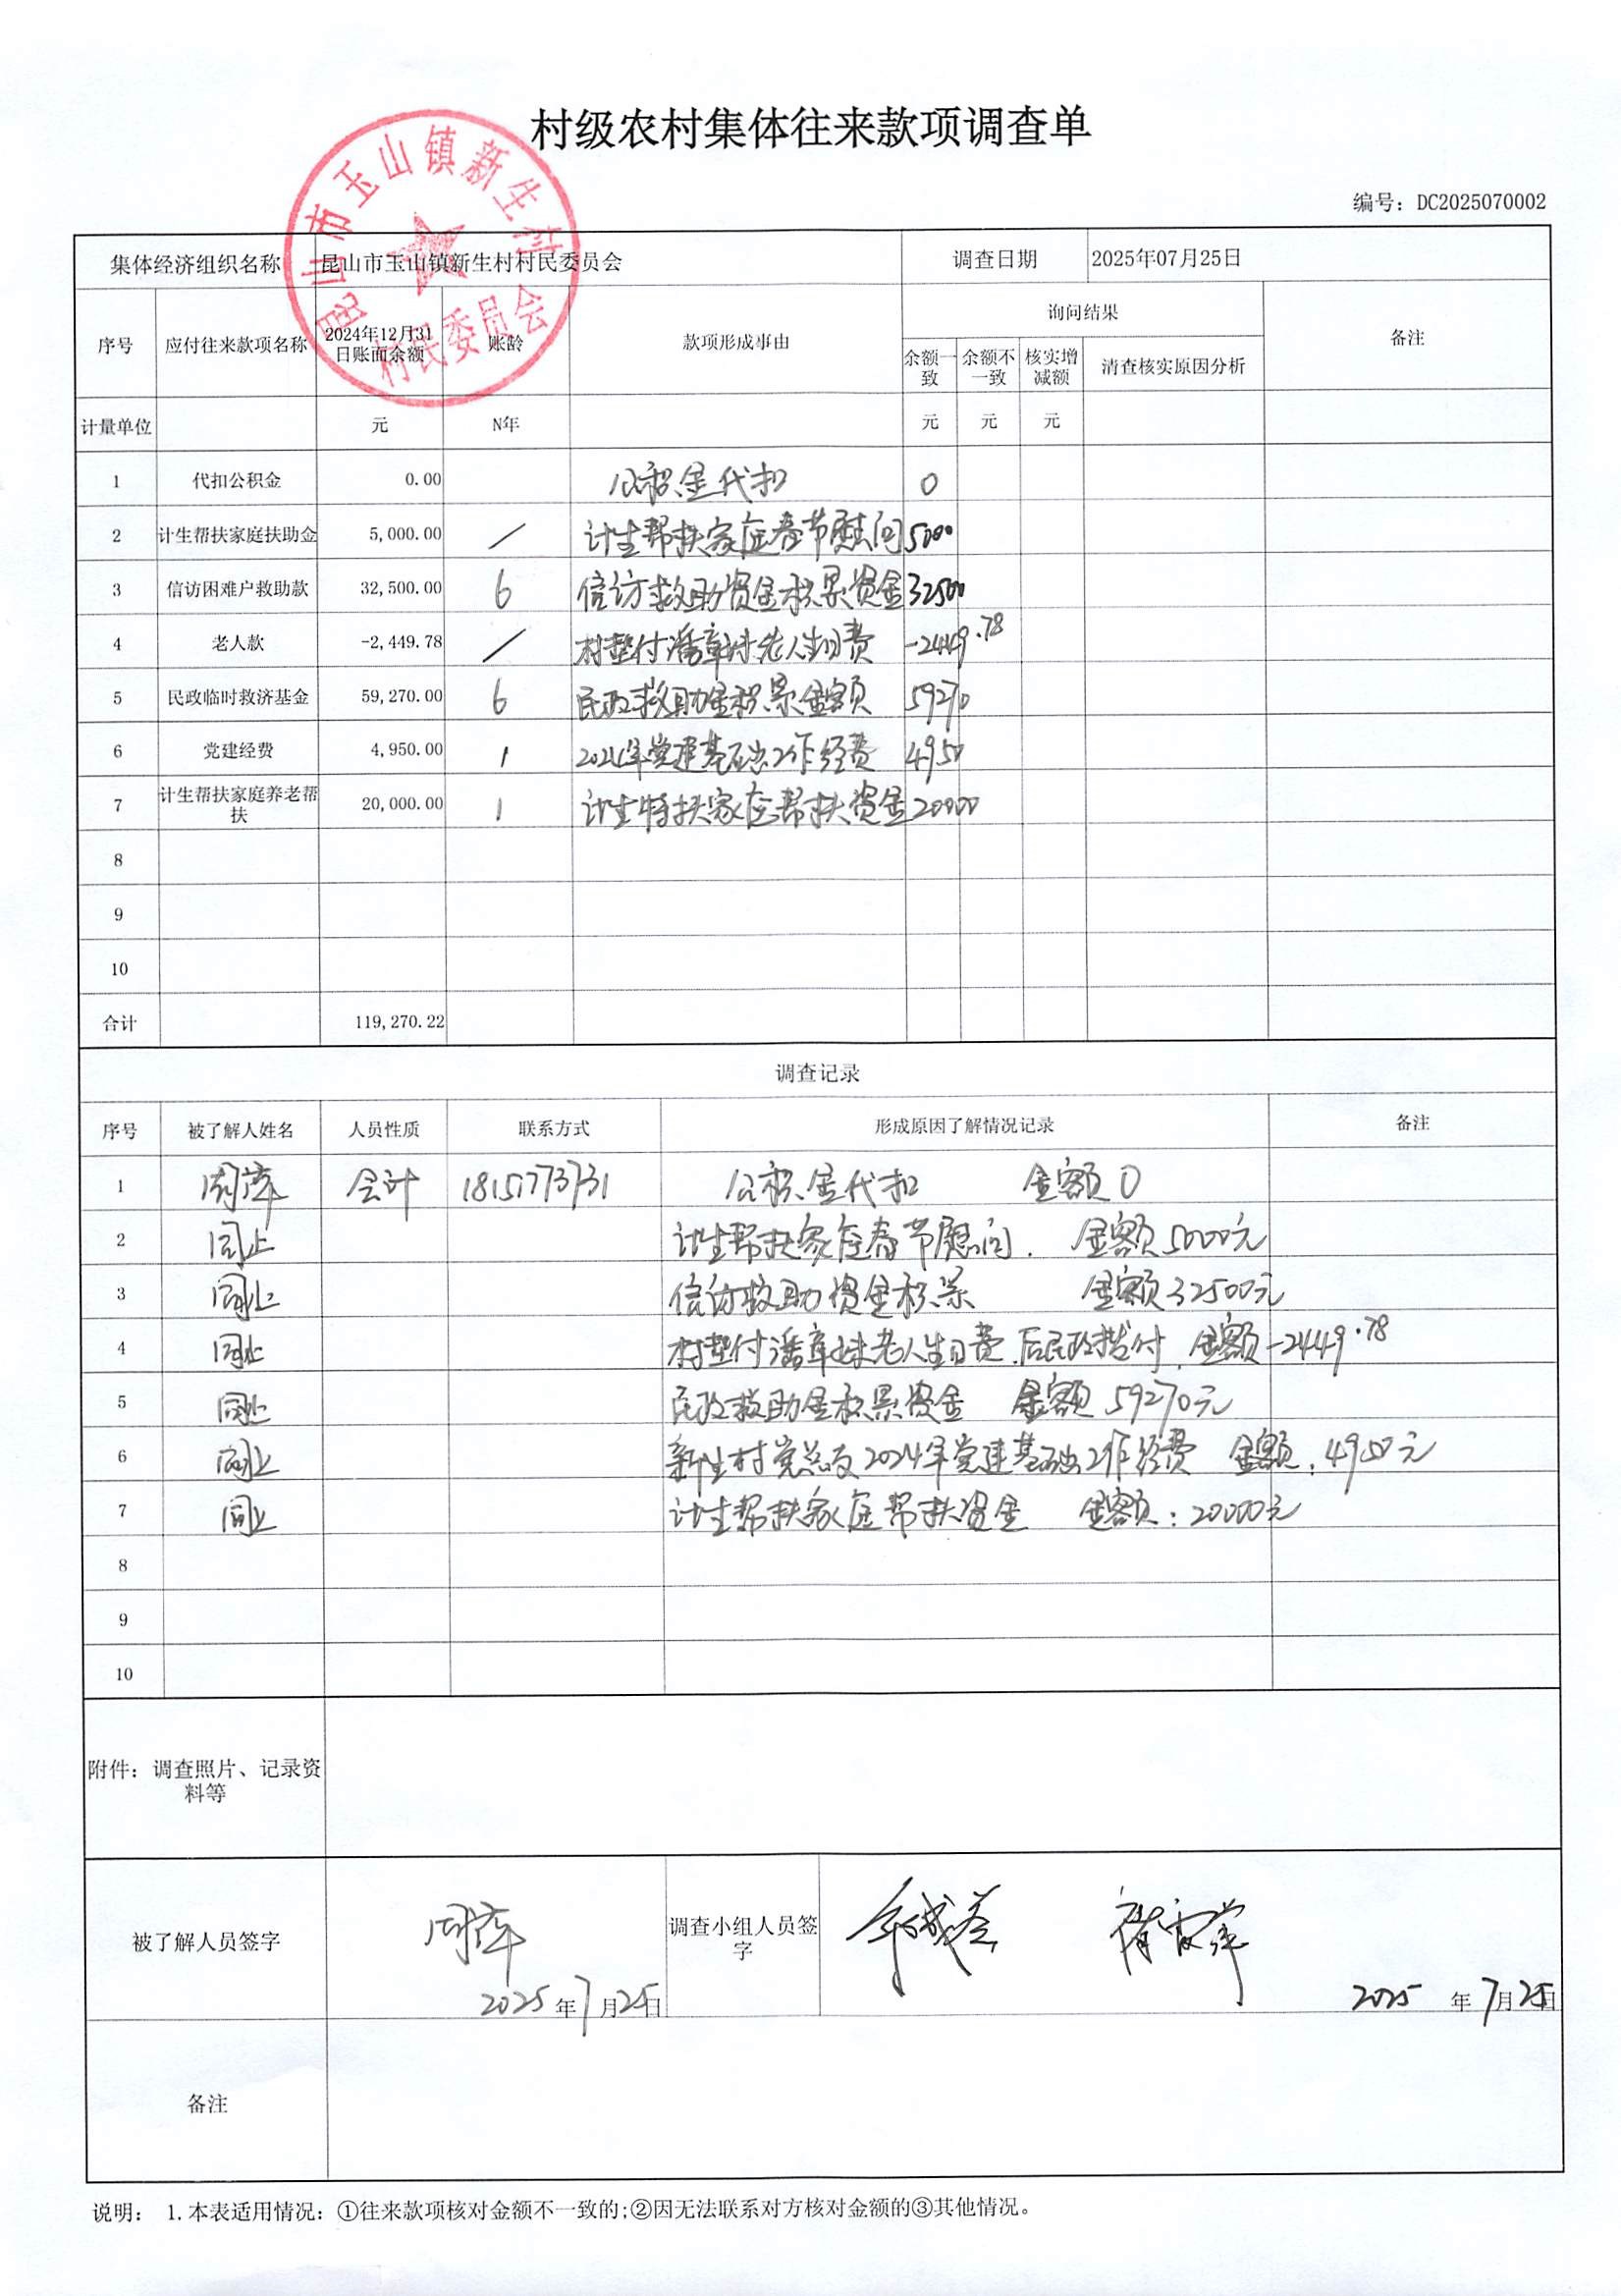 村级农村集体往来款项调查单
编号：DC2025070002
集体经济组织名称 昆山市玉山镇新生村村民委员会 调查日期 2025年07月25日
昆山市玉山镇新生村
村民委员会
序号 应付往来款项名称 2024年12月31日账面余额 账龄 款项形成事由 询问结果 备注
余额一致 余额不一致 核实增减额 清查核实原因分析
计量单位 元 N年 元 元 元
1 代扣公积金 0.00 公积金代扣 0
2 计生帮扶家庭扶助金 5,000.00 / 计生帮扶家庭春节慰问 5000
3 信访困难户救助款 32,500.00 6 信访救助资金积累资金 32500
4 老人款 -2,449.78 / 村垫付潘章妹老人生日费 -2449.78
5 民政临时救济基金 59,270.00 6 民政救助金积累金额 59270
6 党建经费 4,950.00 1 2024年党建基础工作经费 4950
7 计生帮扶家庭养老帮扶 20,000.00 1 计生特扶家庭帮扶资金 20000
8
9
10
合计 119,270.22
调查记录
序号 被了解人姓名 人员性质 联系方式 形成原因了解情况记录 备注
1 周萍 会计 公积金代扣 金额0
2 同上 计生帮扶家庭春节慰问. 金额5000元
3 同上 信访救助资金积累 金额32500元
4 同上 村垫付潘章妹老人生日费.后民政拨付. 金额-2449.78
5 同上 民政救助金积累资金 金额59270元
6 同上 新生村党总支2024年党建基础工作经费 金额:4950元
7 同上 计生帮扶家庭帮扶资金 金额:20000元
8
9
10
附件：调查照片、记录资料等
被了解人员签字 周萍 2025年7月25日 调查小组人员签字 2025年7月25日
备注
说明： 1.本表适用情况：①往来款项核对金额不一致的;②因无法联系对方核对金额的③其他情况。